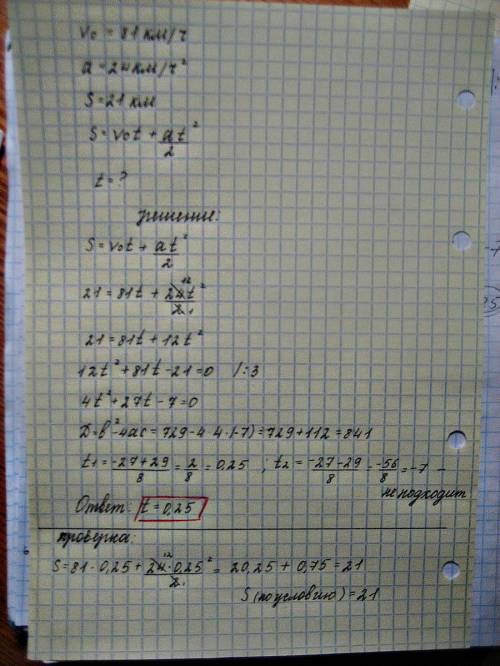 v₀ = 81 км/ч
a = 24 км/ч²
S = 21 км
S = v₀t + at²/2
t = ?
решение:
S = v₀t + at²/2
21 = 81t + 24t²/2 12 1
21 = 81t + 12t²
12t² + 81t - 21 = 0 /:3
4t² + 27t - 7 = 0
D = b² - 4ac = 729 - 4·4·(-7) = 729 + 112 = 841
t₁ = -27+29/8 = 2/8 = 0,25 ; t₂ = -27-29/8 = -56/8 = -7 -
не подходит
Ответ: t = 0,25
проверка:
S = 81 · 0,25 + 24·0,25²/2 12 1 = 20,25 + 0,75 = 21
S (по условию) = 21